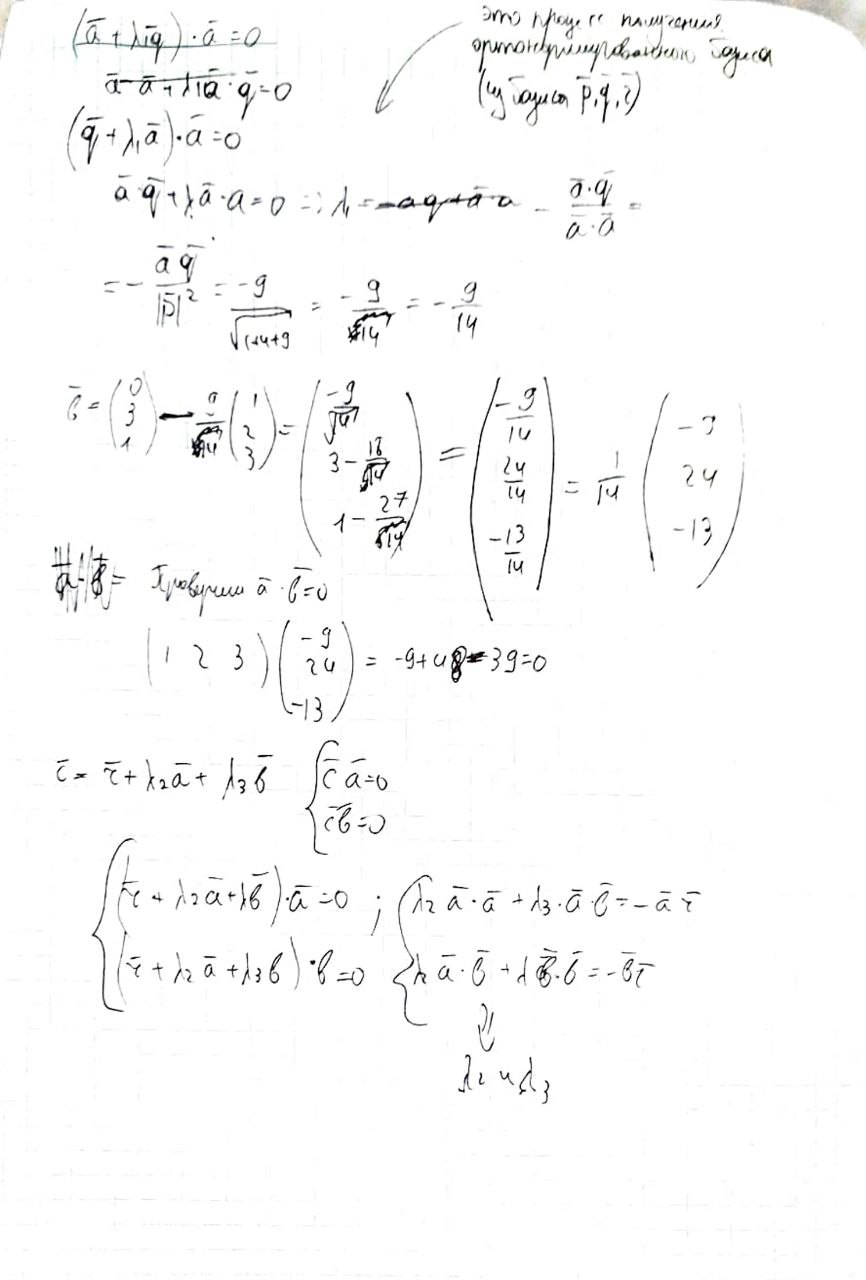 (ā + λ₁q̄) · ā = 0
ā · ā + λ₁ā · q̄ = 0
это процесс получения
ортонормированного базиса
(из базиса p̄, q̄, r̄)
(q̄ + λ₁ā) · ā = 0
ā · q̄ + λ₁ā · a = 0 => λ₁ = - aq + ā · a - (ā · q̄)/(ā · ā) =
= - (ā q̄)/|p̄|² = -9/√(1+4+9) = -9/14 = -9/14
b̄ = (0 3 1) - 9/14 (1 2 3) = (-9/√14 3 - 18/14 1 - 27/14) = (-9/14 24/14 -13/14) = 1/14 (-9 24 -13)
Проверим ā · b̄ = 0
(1 2 3) (-9 24 -13) = -9+48-39=0
c̄ = r̄ + λ₂ā + λ₃b̄ { c̄ ā = 0
c̄b = 0
{ (r̄ + λ₂ā + λb̄) · ā = 0 ; { λ₂ ā · ā + λ₃ · ā · b̄ = - ā r̄
(r̄ + λ₂ā + λ₃b) · b = 0 λ₂ ā · b̄ + λ b̄ · b̄ = - b̄r̄
⇓
λ₂ и λ₃